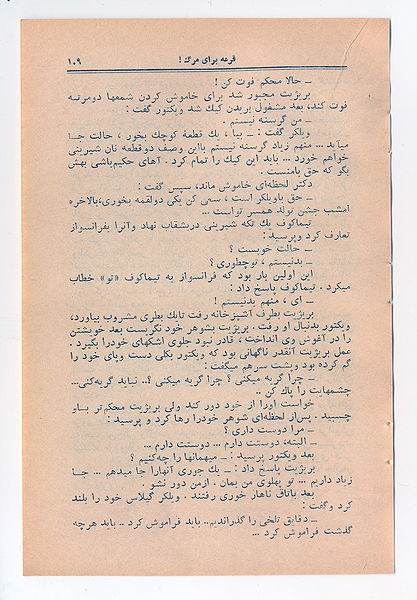 قرعه برای مرگ ! ۱۰۹
ـ حالا محکم فوت کن !
بریژیت مجبور شد برای خاموش کردن شمعها دومرتبه
فوت کند، بعد مشغول بریدن کیك شد ویکتور گفت :
ـ من گرسنه نیستم .
ویلکر گفت : ـ بیا ، یك قطعهٔ کوچك بخور ، حالت جا
میاید ... منهم زیاد گرسنه نیستم بااین وصف دوقطعه نان شیرینی
خواهم خورد ... باید این کیك را تمام کرد . آهای حکیم‌باشی بهش
بگو که حق بامنست .
دکتر لحظه‌ای خاموش ماند، سپس گفت :
ـ حق باویلکر است ، سعی کن یکی دولقمه بخوری،بالاخره
امشب جشن تولد همسر تواست ...
تیماکوف یك تکه شیرینی دربشقاب نهاد وآنرا بفرانسواز
تعارف کرد وپرسید :
ـ حالت خوبست ؟
ـ بدنیستم ، توچطوری ؟
این اولین بار بود که فرانسواز به تیماکوف «تو» خطاب
میکرد . تیماکوف پاسخ داد :
ـ ای ، منهم بدنیستم !
بریژیت بطرف آشپزخانه رفت تایك بطری مشروب بیاورد،
ویکتور بدنبال او رفت . بریژیت بشوهر خود نگریست بعد خویشتن
را در آغوش وی انداخت ، قادر نبود جلوی اشکهای خودرا بگیرد .
عمل بریژیت آنقدر ناگهانی بود که ویکتور بکلی دست وپای خود را
گم کرده بود وپشت سرهم میگفت :
ـ چرا گریه میکنی ؟ چرا گریه میکنی ؟.. نباید گریه‌کنی...
چشمهایت را پاك کن ..
خواست اورا از خود دور کند ولی بریژیت محکم‌تر باو
چسبید . پس‌از لحظه‌ای شوهر خودرا رها کرد و پرسید :
ـ مرا دوست داری ؟
ـ البته، دوستت دارم ... دوستت دارم ...
بعد ویکتور پرسید : ـ میهمانها را چه‌کنیم ؟
بریژیت پاسخ داد : ـ یك جوری آنهارا جا میدهم ... جا
زیاد داریم ... تو پهلوی من بمان . ازمن دور نشو .
بعد باتاق ناهار خوری رفتند . ویلکر گیلاس خود را بلند
کرد وگفت :
ـ دقایق تلخی را گذراندیم.. باید فراموش کرد .. باید هرچه
گذشت فراموش کرد ...